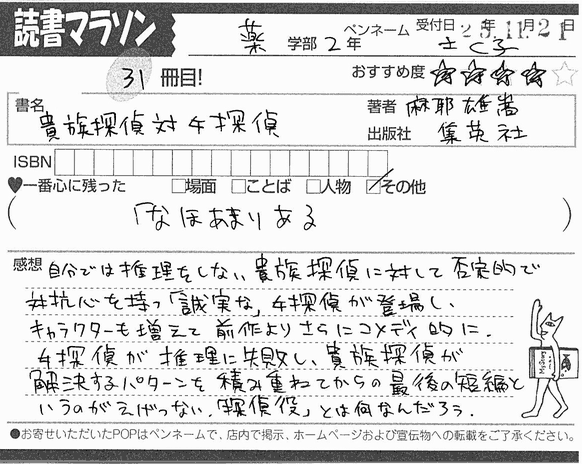 読書マラソン
薬 学部 2年 ペンネーム さく子 受付日 23年11月21日
31 冊目! おすすめ度 ★★★★☆
書名 貴族探偵対女探偵
著者 麻耶雄嵩
出版社 集英社
ISBN
♥一番心に残った □場面 □ことば □人物 ☑その他
(「なほあまりある」)
感想 自分では推理をしない貴族探偵に対して否定的で
対抗心を持つ「誠実な」女探偵が登場し、
キャラクターも増えて前作よりさらにコメディ的に。
女探偵が推理に失敗し、貴族探偵が
解決するパターンを積み重ねてからの最後の短編と
いうのがえげつない。「探偵役」とは何なんだろう。
●お寄せいただいたPOPはペンネームで、店内で掲示、ホームページおよび宣伝物への転載をご了承ください。